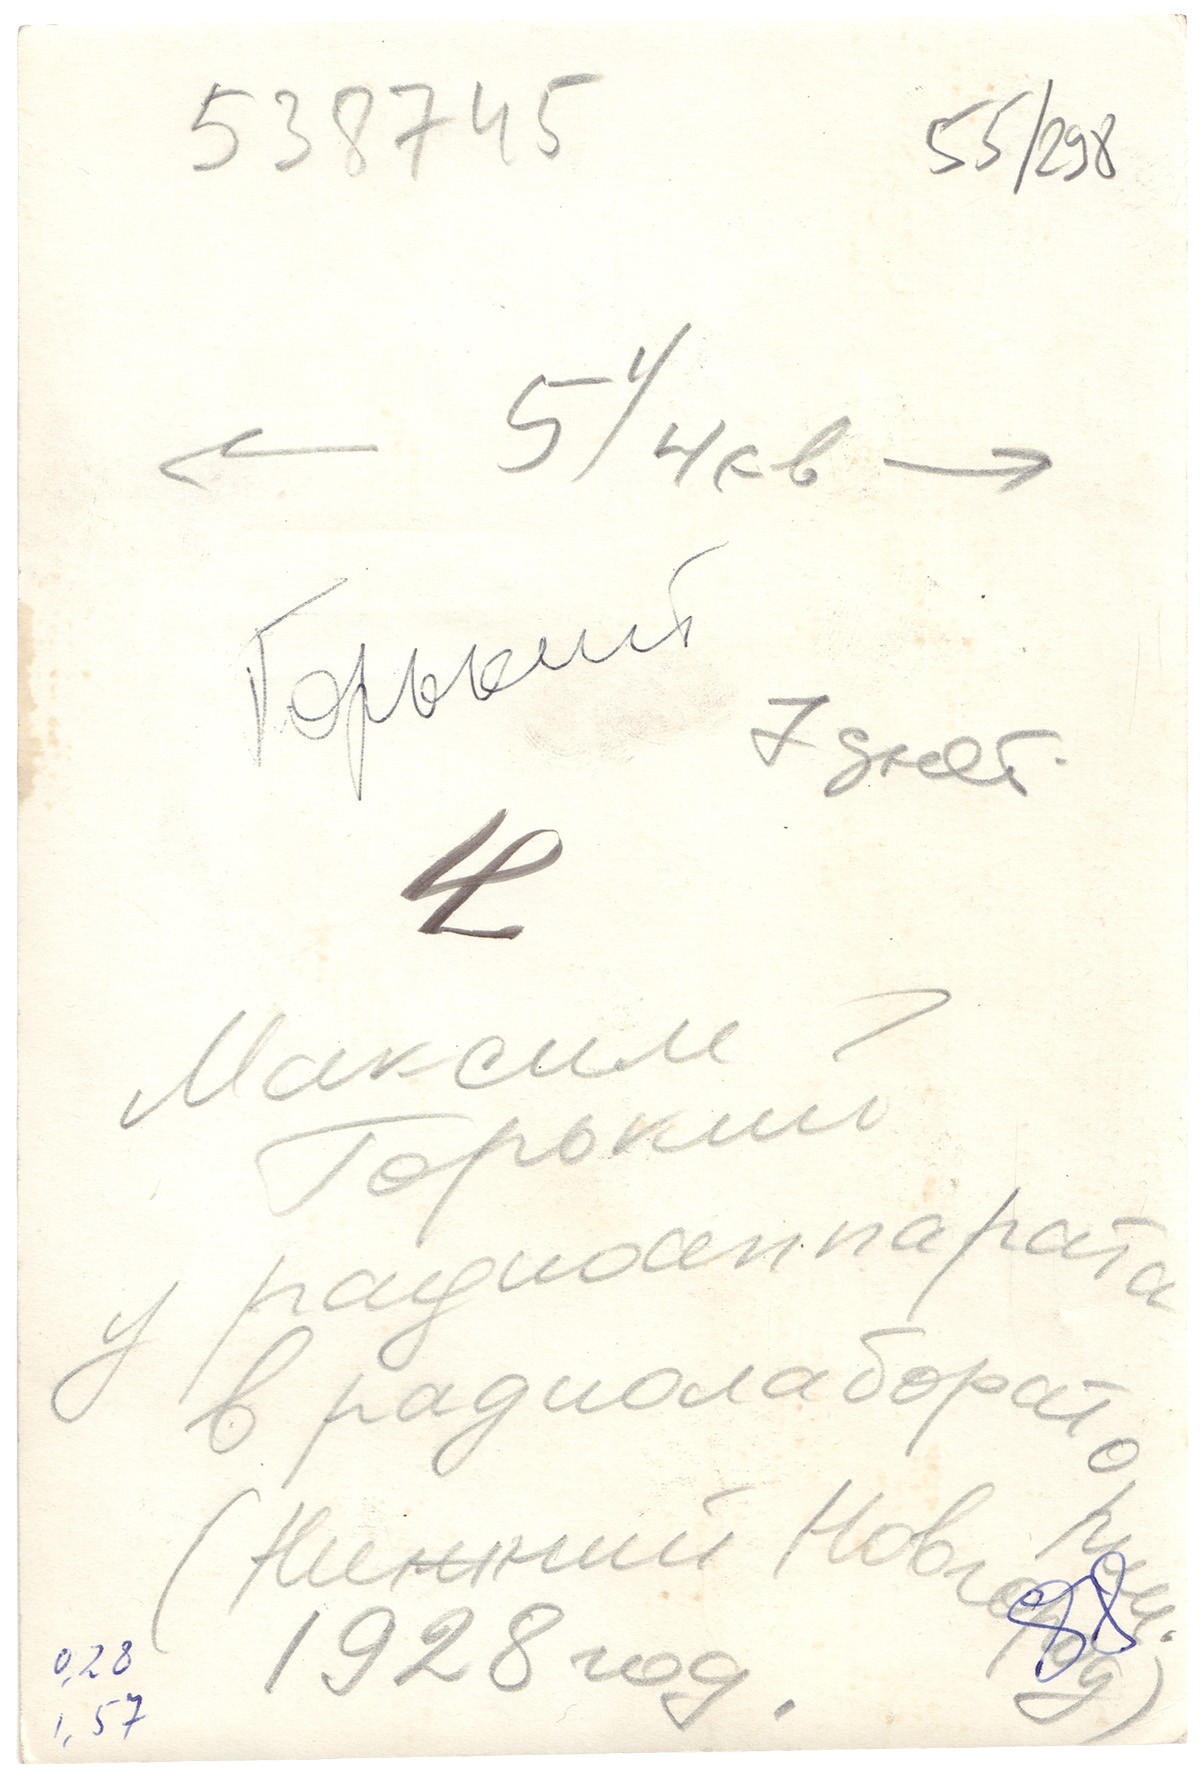 538745
55/298
5 1/4 кв
Горький
7 дней.
Максим
Горький
у радиоаппарата
в радиолаборатории.
(Нижний Новгород)
1928 год.
98
0,28
1,57